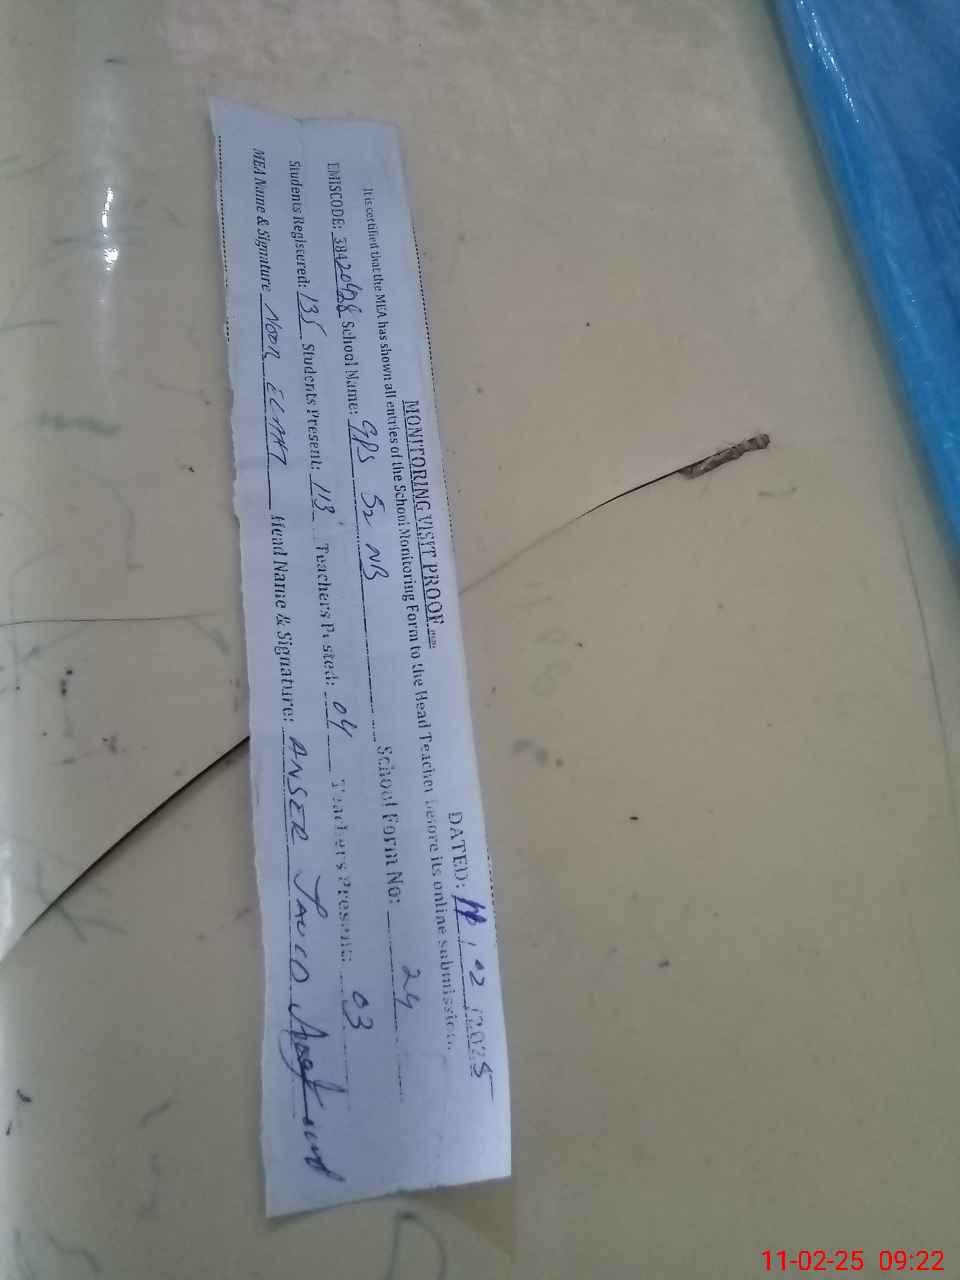 MONITORING VISIT PROOF
DATED: 11 / 02 / 2025
It is certified that the MEA has shown all entries of the School Monitoring Form to the Head Teacher before its online submission.
EMISCODE: 38420428 School Name: GPS 52 NB School Form No: 24
Students Registered: 135 Students Present: 113 Teachers Posted: 04 Teachers Present: 03
MEA Name & Signature NOOR Head Name & Signature: ANSER
11-02-25 09:22